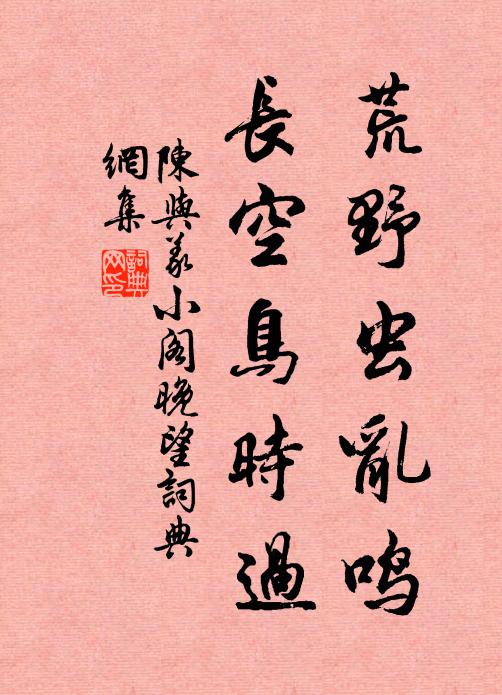 荒野虫亂鳴
長空鳥時過
陳與義小閣晚望詞典
網集
詞典
网印